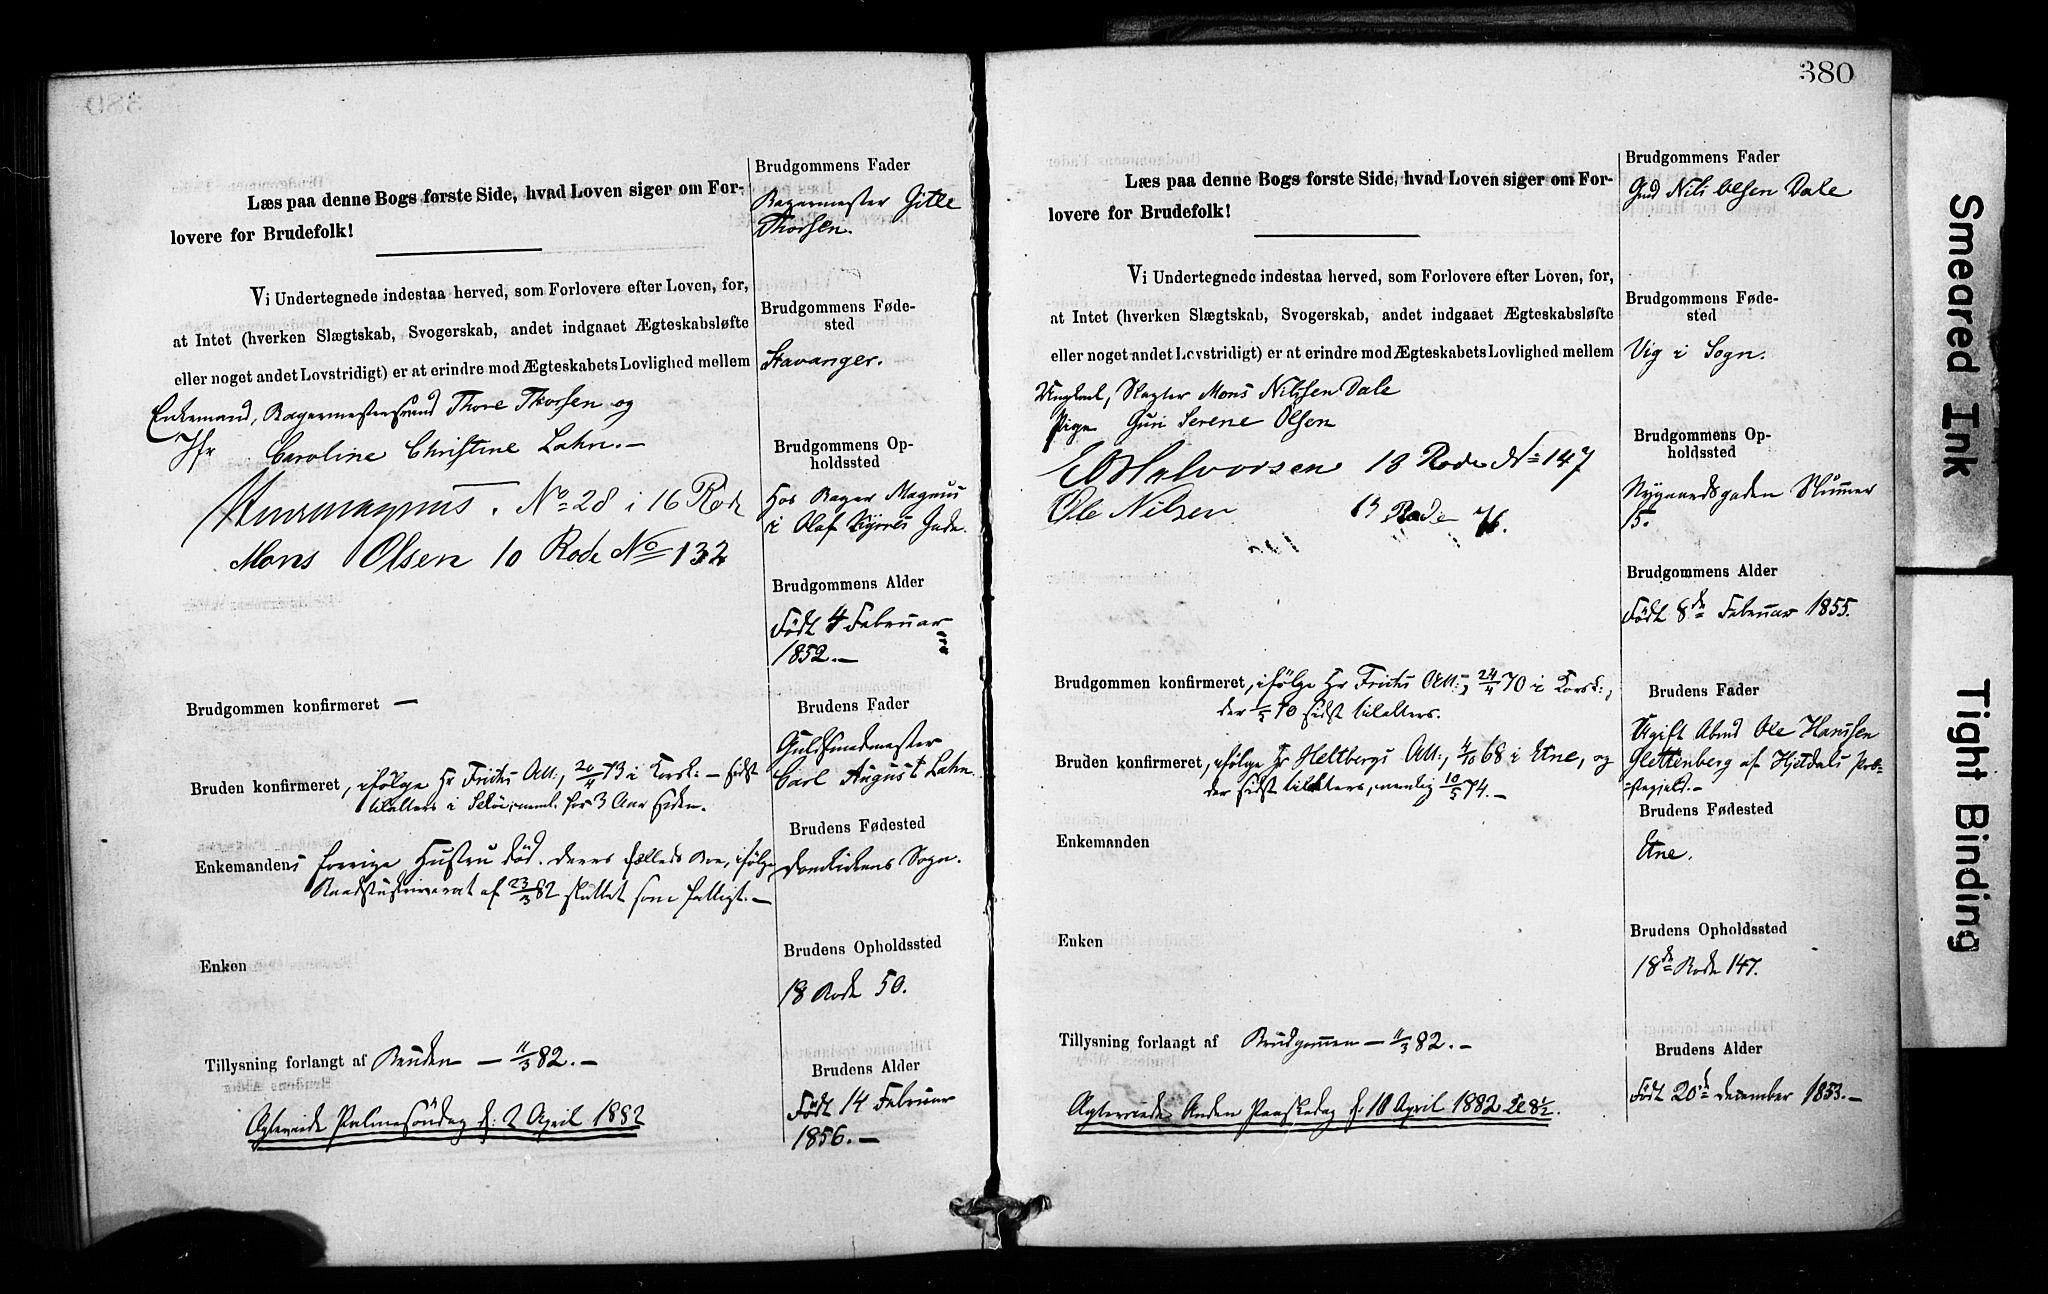 Læs paa denne Bogs første Side, hvad Loven siger om For-
lovere for Brudefolk!
Vi Undertegnede indestaa herved, som Forlovere efter Loven, for,
at Intet (hverken Slægtskab, Svogerskab, andet indgaaet Ægteskabsløfte
eller noget andet Lovstridigt) er at erindre mod Ægteskabets Lovlighed mellem
Enkemand, Bagermestersvend Thore Thorsen og
Jfr Caroline Christine Lahn.-
No 28 i 16 Rode
Mons Olsen 10 Rode No 132
Brudgommen konfirmeret —
Bruden konfirmeret, ifølge Hr Frichs Att:, 20/4 73 i Korsk: - sidst
tilalters i for 3 Aar siden.
Enkemandens forrige Hustru død. Deres fælleds Bo, ifølge
af 23/3 82 sluttet som fattigt.-
Enken
Tillysning forlangt af Bruden - 11/3 82.-
Agtevviede Palmesøndag d: 2 April 1882
Brudgommens Fader
Bagermester Gitle
Thorsen.
Brudgommens Føde-
sted
Stavanger.
Brudgommens Op-
holdssted
Hos Bager Magnus
i Olaf Kyrres Gade.
Brudgommens Alder
Født 4 Februar
1852.-
Brudens Fader
Guldsmedmester
Carl August Lahn.
Brudens Fødested
Domkirkens Sogn.
Brudens Opholdssted
18 Rode 50.
Brudens Alder
Født 14 Februar
1856.-
380
Læs paa denne Bogs første Side, hvad Loven siger om For-
lovere for Brudefolk!
Vi Undertegnede indestaa herved, som Forlovere efter Loven, for,
at Intet (hverken Slægtskab, Svogerskab, andet indgaaet Ægteskabsløfte
eller noget andet Lovstridigt) er at erindre mod Ægteskabets Lovlighed mellem
Ungkarl, Slagter Mons Nilssen Dale
Pige Guri Serene Olsen
Halvorsen 18 Rode No 147
Ole Nilsen 13 Rode 76.
Brudgommen konfirmeret, ifølge Hr Frichs Att:, 24/4 70 i Korsk:,
der 1/5 70 sidst tilalters.
Bruden konfirmeret, ifølge Hr Heltbergs Att:, 4/10 68 i Etne, og
der sidst tilalters, nemlig 10/5 74.-
Enkemanden
Enken
Tillysning forlangt af Brudgommen - 11/3 82.-
Agtevviede Anden Paaskedag d: 10 April 1882 Kl 8½.
Brudgommens Fader
Gmd Nils Olsen Dale
Brudgommens Føde-
sted
Vig i Sogn.
Brudgommens Op-
holdssted
Nygaardsgaden Nummer
15.
Brudgommens Alder
Født 8de Februar 1855.
Brudens Fader
Ugift Arbmd Ole Hanssen
Glettenberg af Hjerdals Præ-
stegjeld.-
Brudens Fødested
Etne.
Brudens Opholdssted
18de Rode 147.
Brudens Alder
Født 20de December 1853.-
Smeared Ink
Tight Binding